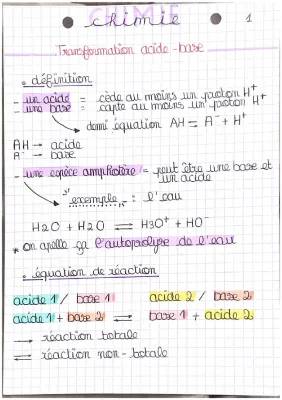 CHIMIE
chimie
1
Transformation acide-base
• définition
- un acide = cède au moins un proton H⁺
- une base = capte au moins un proton H⁺
demi équation AH = A⁻ + H⁺
AH → acide
A⁻ → base
- une espèce amphotère = peut être une base et
un acide
exemple : l'eau
H2O + H2O ⇌ H3O⁺ + HO⁻
* on apelle ça l'autoprolyse de l'eau
• équation de réaction
acide 1 / base 1 acide 2 / base 2
acide 1 + base 2 ⇌ base 1 + acide 2
→ réaction totale
⇌ réaction non-totale